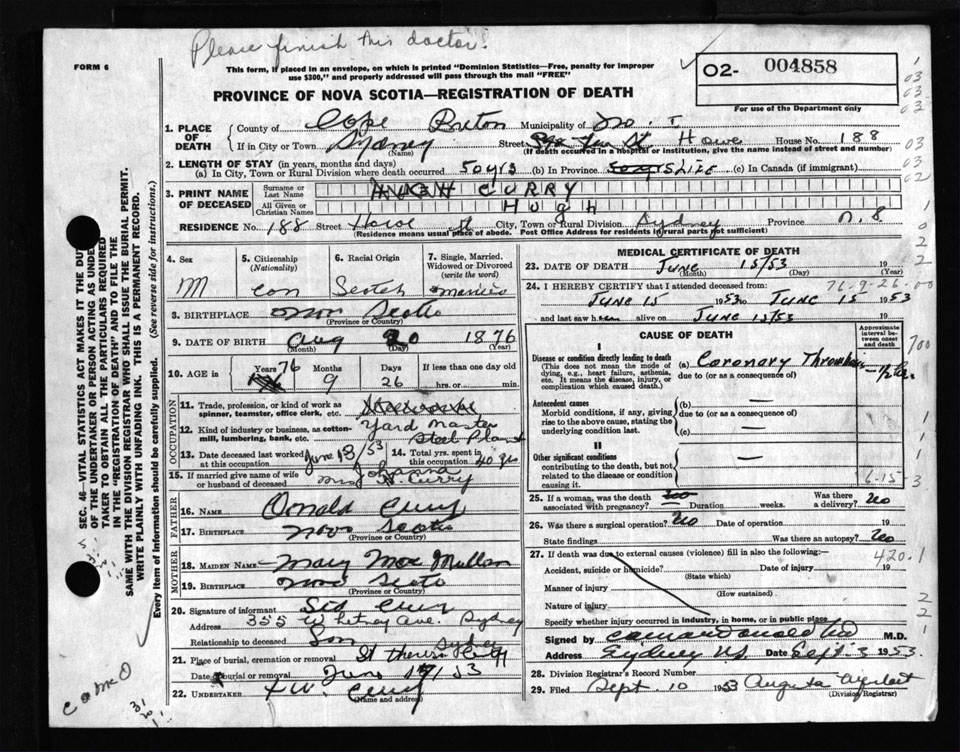 Please finish this doctor!
FORM 6
This form, if placed in an envelope, on which is printed "Dominion Statistics—Free, penalty for improper
use $300," and properly addressed will pass through the mail "FREE"
O2- 004858
For use of the Department only
PROVINCE OF NOVA SCOTIA—REGISTRATION OF DEATH
1. PLACE OF DEATH
County of Cape Breton Municipality of No. 1
If in City or Town Sydney (Name) Street Howe House No. 188
(If death occurred in a hospital or institution, give the name instead of street and number)
2. LENGTH OF STAY (in years, months and days)
(a) In City, Town or Rural Division where death occurred 50 yrs (b) In Province LIFE (c) In Canada (if immigrant)
3. PRINT NAME OF DECEASED
Surname or Last Name CURRY
All Given or Christian Names Hugh
RESIDENCE No. 188 Street Howe St City, Town or Rural Division Sydney Province N.S
(Residence means usual place of abode. Post Office Address for residents in rural parts not sufficient)
4. Sex M
5. Citizenship (Nationality) Can
6. Racial Origin Scotch
7. Single, Married, Widowed or Divorced (write the word) Married
8. BIRTHPLACE Nova Scotia
(Province or Country)
9. DATE OF BIRTH Aug (Month) 20 (Day) 1876 (Year)
10. AGE in Years 76 Months 9 Days 26 If less than one day old hrs. or min.
OCCUPATION
11. Trade, profession, or kind of work as spinner, teamster, office clerk, etc.
12. Kind of industry or business, as cotton-mill, lumbering, bank, etc. Yard Master Steel Plant
13. Date deceased last worked at this occupation June 13/53
14. Total yrs. spent in this occupation 40 yrs
15. If married give name of wife or husband of deceased Mrs Johanna Curry
FATHER
16. NAME Donald Curry
17. BIRTHPLACE Nova Scotia
(Province or Country)
MOTHER
18. MAIDEN NAME Mary Mac Mullan
19. BIRTHPLACE Nova Scotia
(Province or Country)
20. Signature of informant Sid Curry
Address 355 Whitney Ave. Sydney
Relationship to deceased Son
21. Place of burial, cremation or removal St Theresa Sydney
Date of burial or removal June 17/53
22. UNDERTAKER T W. Curry
(Name and address)
MEDICAL CERTIFICATE OF DEATH
23. DATE OF DEATH June 15/53 19
(Month) (Day) (Year)
24. I HEREBY CERTIFY that I attended deceased from: 76-9-26-00
June 15 1953 to June 15 1953
and last saw h alive on June 15/53 19
CAUSE OF DEATH
Approximate interval between onset and death
I
Disease or condition directly leading to death
(This does not mean the mode of dying, e.g., heart failure, asthenia, etc. It means the disease, injury, or complication which caused death.)
(a) Coronary
due to (or as a consequence of)
Antecedent causes
Morbid conditions, if any, giving rise to the above cause, stating the underlying condition last.
(b) —
due to (or as a consequence of)
(c) —
II
Other significant conditions
contributing to the death, but not related to the disease or condition causing it.
—
6-15-3
25. If a woman, was the death associated with pregnancy? No Duration weeks. Was there a delivery? No
26. Was there a surgical operation? No Date of operation 19
State findings Was there an autopsy? No
27. If death was due to external causes (violence) fill in also the following:—
420.1
Accident, suicide or homicide? Date of injury 19
(State which)
Manner of injury
(How sustained)
Nature of injury
Specify whether injury occurred in industry, in home, or in public place
Signed by M.D.
Address Sydney N.S. Date Sept. 3 1953.
28. Division Registrar's Record Number
29. Filed Sept. 10 1953 Augusta
(Division Registrar)
SEC. 46—VITAL STATISTICS ACT MAKES IT THE DUTY
OF THE UNDERTAKER OR PERSON ACTING AS UNDER-
TAKER TO OBTAIN ALL THE PARTICULARS REQUIRED
IN THE "REGISTRATION OF DEATH" AND TO FILE THE
SAME WITH THE DIVISION REGISTRAR WHO SHALL ISSUE THE BURIAL PERMIT.
WRITE PLAINLY WITH UNFADING INK. THIS IS A PERMANENT RECORD.
Every item of information should be carefully supplied. (See reverse side for instructions.)